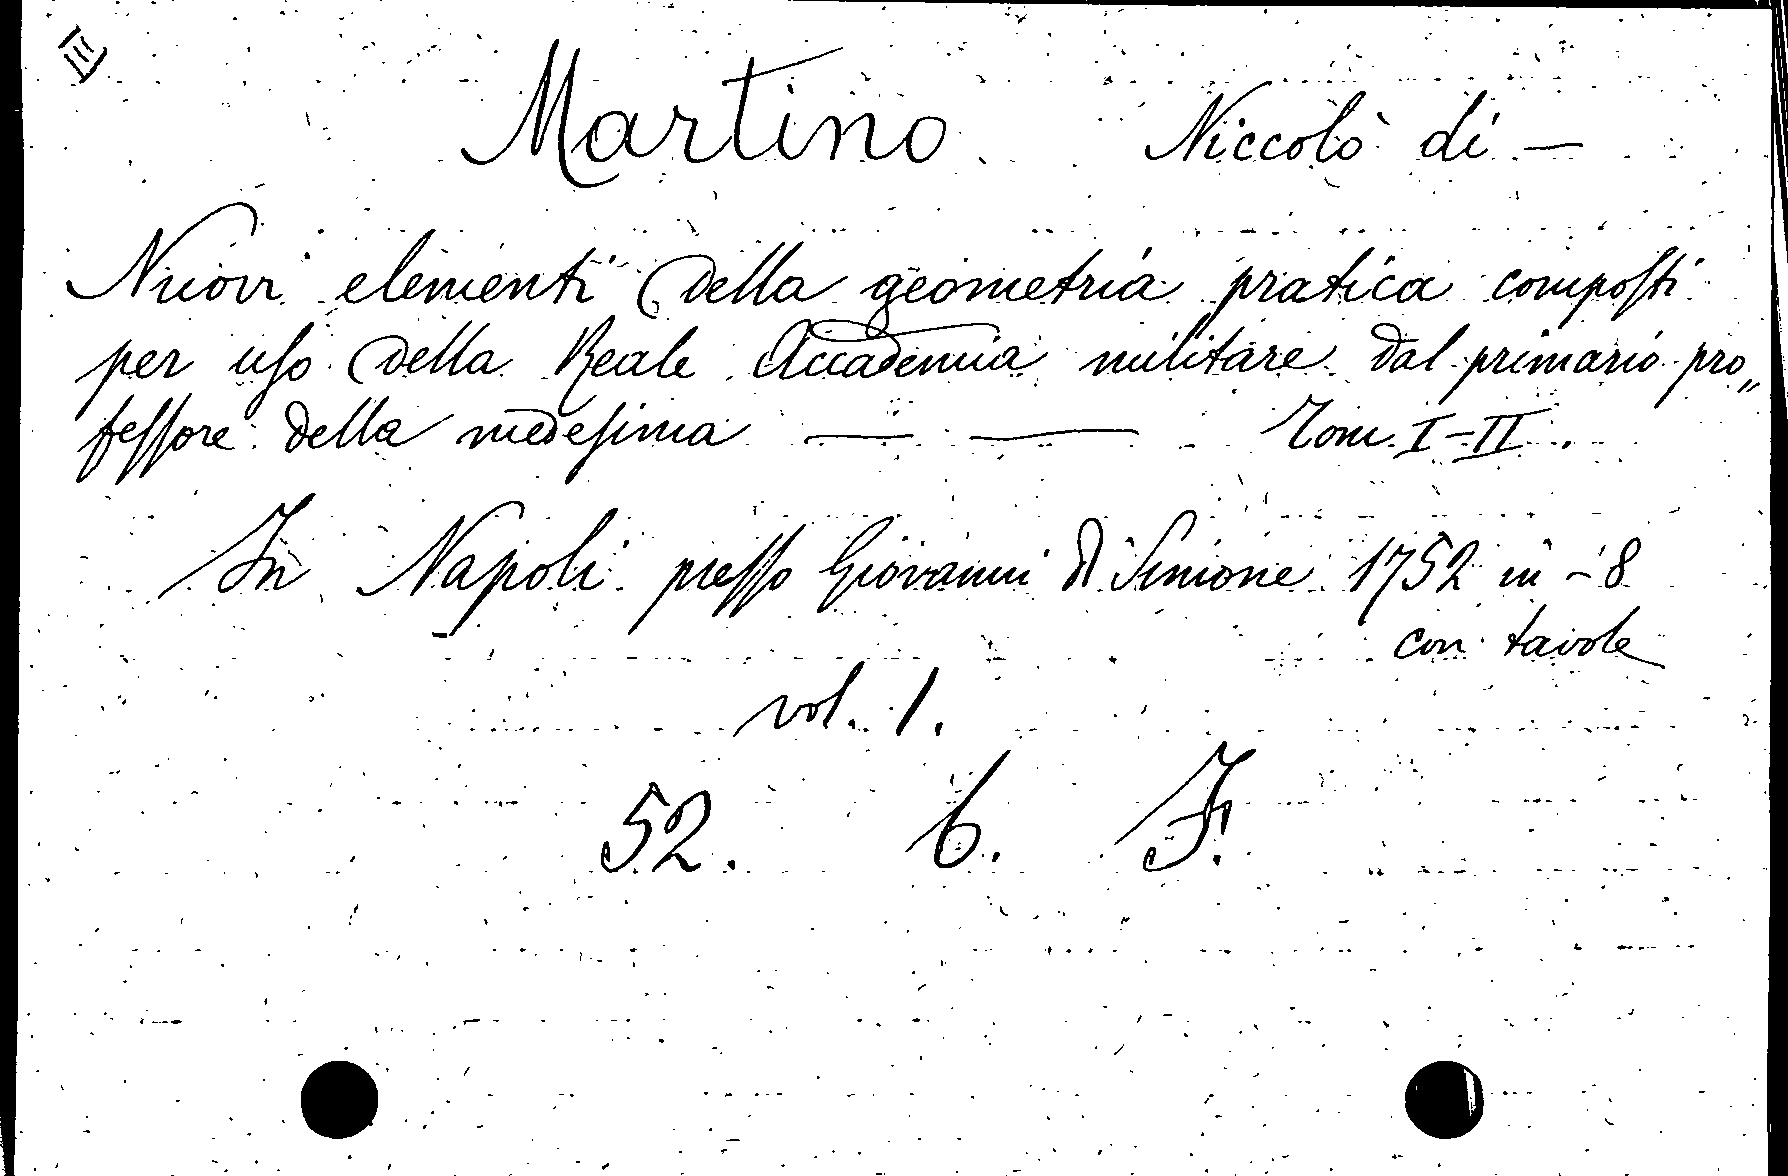 III
Martino Niccolò di —
Nuovi elementi della geometria pratica compoſti
per uſo della Reale Accademia militare dal primario pro„
feſſore della medeſima — — Tom. I-II.
In Napoli preſſo Giovanni di Simone 1752 in -8
con tavole
vol. 1.
52. 6. F.